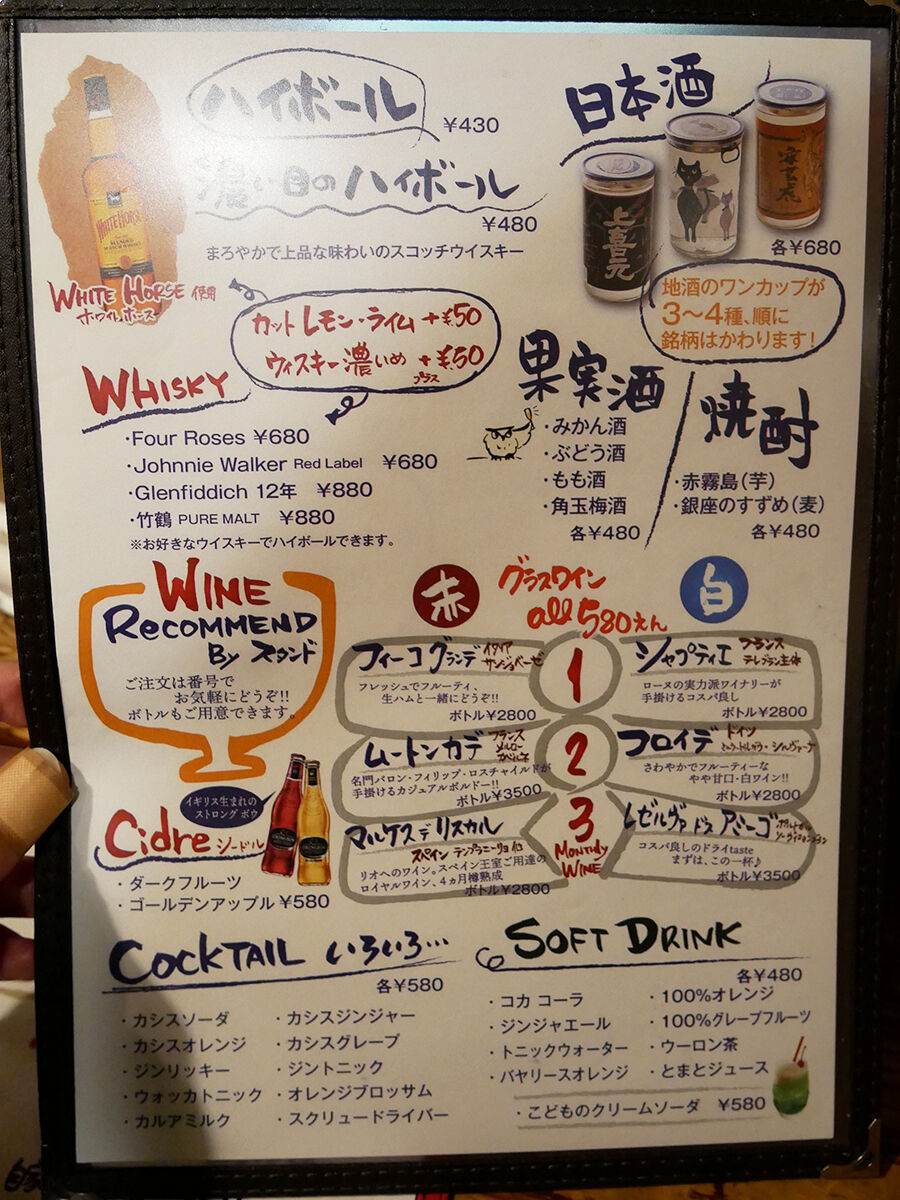 ハイボール
¥430
濃い目のハイボール
¥480
まろやかで上品な味わいのスコッチウイスキー
WHITE HORSE
WHITE HORSE 使用
ホワイトホース
カットレモン・ライム +¥50
ウィスキー濃いめ +¥50
プラス
日本酒
上喜元
各¥680
地酒のワンカップが
3〜4種、順に
銘柄はかわります!
WHISKY
・Four Roses ¥680
・Johnnie Walker Red Label ¥680
・Glenfiddich 12年 ¥880
・竹鶴 PURE MALT ¥880
※お好きなウイスキーでハイボールできます。
果実酒
・みかん酒
・ぶどう酒
・もも酒
・角玉梅酒
各¥480
焼酎
・赤霧島(芋)
・銀座のすずめ(麦)
各¥480
WINE
RECOMMEND
By スタンド
ご注文は番号で
お気軽にどうぞ!!
ボトルもご用意できます。
赤
グラスワイン
all 580えん
白
フィーコグランデ イタリア
サンジョベーゼ
フレッシュでフルーティ、
生ハムと一緒にどうぞ!!
ボトル¥2800
1
シャプティエ フランス
テレブラン主体
ローヌの実力派ワイナリーが
手掛けるコスパ良し
ボトル¥2800
ムートンカデ フランス
メルロー
カベルネ
名門バロン・フィリップ・ロスチャイルドが
手掛けるカジュアルボルドー!!
ボトル¥3500
2
フロイデ ドイツ
さわやかでフルーティーな
やや甘口・白ワイン!!
ボトル¥2800
マルケス デ リスカル
スペイン テンプラニーリョ 他
リオハのワイン。スペイン王室ご用達の
ロイヤルワイン、4ヵ月樽熟成
ボトル¥2800
3
MONTHLY
WINE
レゼルヴァ ドス アミーゴ
コスパ良しのドライtaste
まずは、この一杯♪
ボトル¥3500
イギリス生まれの
ストロング ボウ
Cidre シードル
・ダークフルーツ
・ゴールデンアップル ¥580
COCKTAIL いろいろ…
各¥580
・カシスソーダ
・カシスオレンジ
・ジンリッキー
・ウォッカトニック
・カルアミルク
・カシスジンジャー
・カシスグレープ
・ジントニック
・オレンジブロッサム
・スクリュードライバー
SOFT DRINK
各¥480
・コカ コーラ
・ジンジャエール
・トニックウォーター
・バヤリースオレンジ
・100%オレンジ
・100%グレープフルーツ
・ウーロン茶
・とまとジュース
・こどものクリームソーダ ¥580